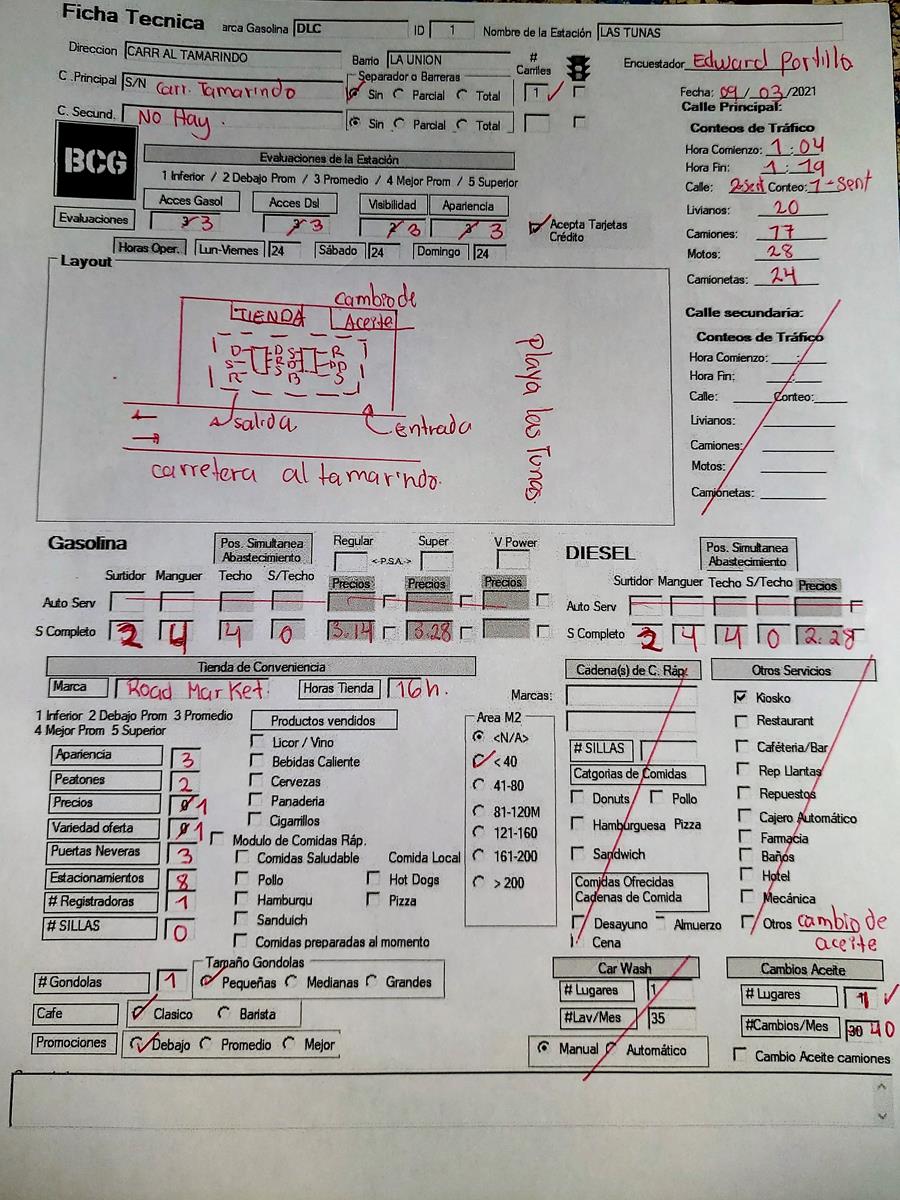 Ficha Tecnica arca Gasolina DLC ID 1 Nombre de la Estación LAS TUNAS
Direccion CARR AL TAMARINDO Barrio LA UNION # Carriles Encuestador Edward Portillo
C.Principal S/N Carr. Tamarindo Separador o Barreras Sin Parcial Total 1
C. Secund. No Hay. Sin Parcial Total
Fecha: 09/03/2021
Calle Principal:
Conteos de Tráfico
Hora Comienzo: 1:04
Hora Fin: 1:19
Calle: 2-Sent Conteo: 1-sent
Livianos: 20
Camiones: 17
Motos: 28
Camionetas: 24
BCG
Evaluaciones de la Estación
1 Inferior / 2 Debajo Prom / 3 Promedio / 4 Mejor Prom / 5 Superior
Acces Gasol Acces Dsl Visibilidad Apariencia
Evaluaciones 3 3 3 3 Acepta Tarjetas Crédito
Horas Oper. Lun-Viernes 24 Sábado 24 Domingo 24
Layout
TIENDA
cambio de
Aceite
D D S R
S R D D
R S B S
salida
Entrada
carretera al tamarindo.
Playa las Tunas.
Calle secundaria:
Conteos de Tráfico
Hora Comienzo: :
Hora Fin: :
Calle: Conteo:
Livianos:
Camiones:
Motos:
Camionetas:
Gasolina Pos. Simultanea Abastecimiento Regular <-P.S.A.-> Super V Power
Surtidor Manguer Techo S/Techo Precios Precios Precios
Auto Serv
S Completo 2 4 4 0 3.14 3.28
DIESEL Pos. Simultanea Abastecimiento
Surtidor Manguer Techo S/Techo Precios
Auto Serv
S Completo 2 4 4 0 2.28
Tienda de Conveniencia
Marca Road Market. Horas Tienda 16h.
1 Inferior 2 Debajo Prom 3 Promedio
4 Mejor Prom 5 Superior
Apariencia 3
Peatones 2
Precios 0 1
Variedad oferta 0 1
Puertas Neveras 3
Estacionamientos 8
# Registradoras 1
# SILLAS 0
Productos vendidos
Licor / Vino
Bebidas Caliente
Cervezas
Panaderia
Cigarrillos
Modulo de Comidas Ráp.
Comidas Saludable Comida Local
Pollo Hot Dogs
Hamburqu Pizza
Sanduich
Comidas preparadas al momento
Area M2
<N/A>
< 40
41-80
81-120M
121-160
161-200
> 200
Marcas:
Cadena(s) de C. Ráp.
# SILLAS
Catgorias de Comidas
Donuts Pollo
Hamburguesa Pizza
Sandwich
Comidas Ofrecidas
Cadenas de Comida
Desayuno Almuerzo
Cena
Otros Servicios
Kiosko
Restaurant
Caféteria/Bar
Rep Llantas
Repuestos
Cajero Automático
Farmacia
Baños
Hotel
Mecánica
Otros cambio de
aceite
# Gondolas 1 Tamaño Gondolas Pequeñas Medianas Grandes
Cafe Clasico Barista
Promociones Debajo Promedio Mejor
Car Wash
# Lugares 1
#Lav/Mes 35
Manual Automático
Cambios Aceite
# Lugares 1
#Cambios/Mes 30 40
Cambio Aceite camiones